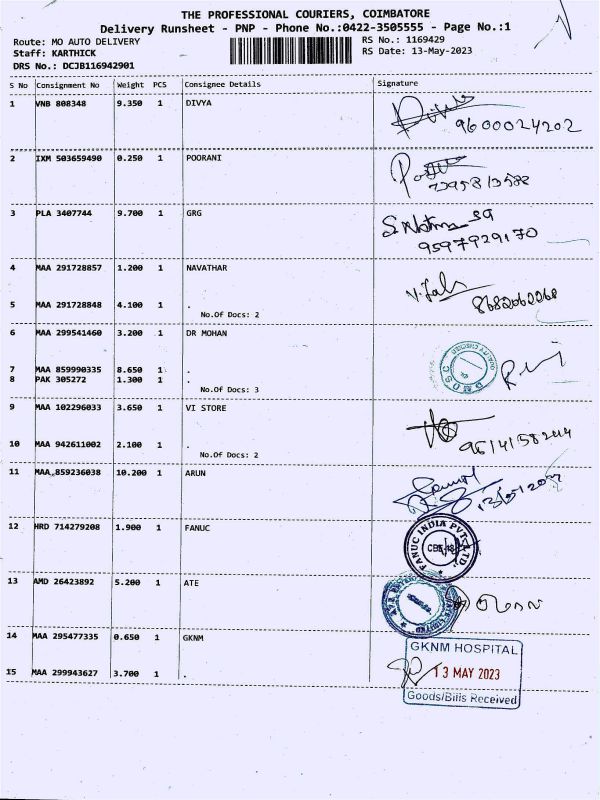 THE PROFESSIONAL COURIERS, COIMBATORE
Delivery Runsheet - PNP - Phone No.:0422-3505555 - Page No.:1
Route: MO AUTO DELIVERY
RS No.: 1169429
Staff: KARTHICK
RS Date: 13-May-2023
DRS No.: DCJB116942901
S No Consignment No Weight PCS Consignee Details Signature
1 VNB 808348 9.350 1 DIVYA
9600024202
2 IXM 503659490 0.250 1 POORANI
3 PLA 3407744 9.700 1 GRG
9597929170
4 MAA 291728857 1.200 1 NAVATHAR
8682062268
5 MAA 291728848 4.100 1 .
No.Of Docs: 2
6 MAA 299541460 3.200 1 DR MOHAN
7 MAA 859990335 8.650 1 .
8 PAK 305272 1.300 1 .
No.Of Docs: 3
9 MAA 102296033 3.650 1 VI STORE
10 MAA 942611002 2.100 1 .
No.Of Docs: 2
11 MAA 859236038 10.200 1 ARUN
12 HRD 714279208 1.900 1 FANUC
FANUC INDIA PVT. LTD.
13 AMD 26423892 5.200 1 ATE
14 MAA 295477335 0.650 1 GKNM
GKNM HOSPITAL
13 MAY 2023
15 MAA 299943627 3.700 1 .
Goods/Bills Received